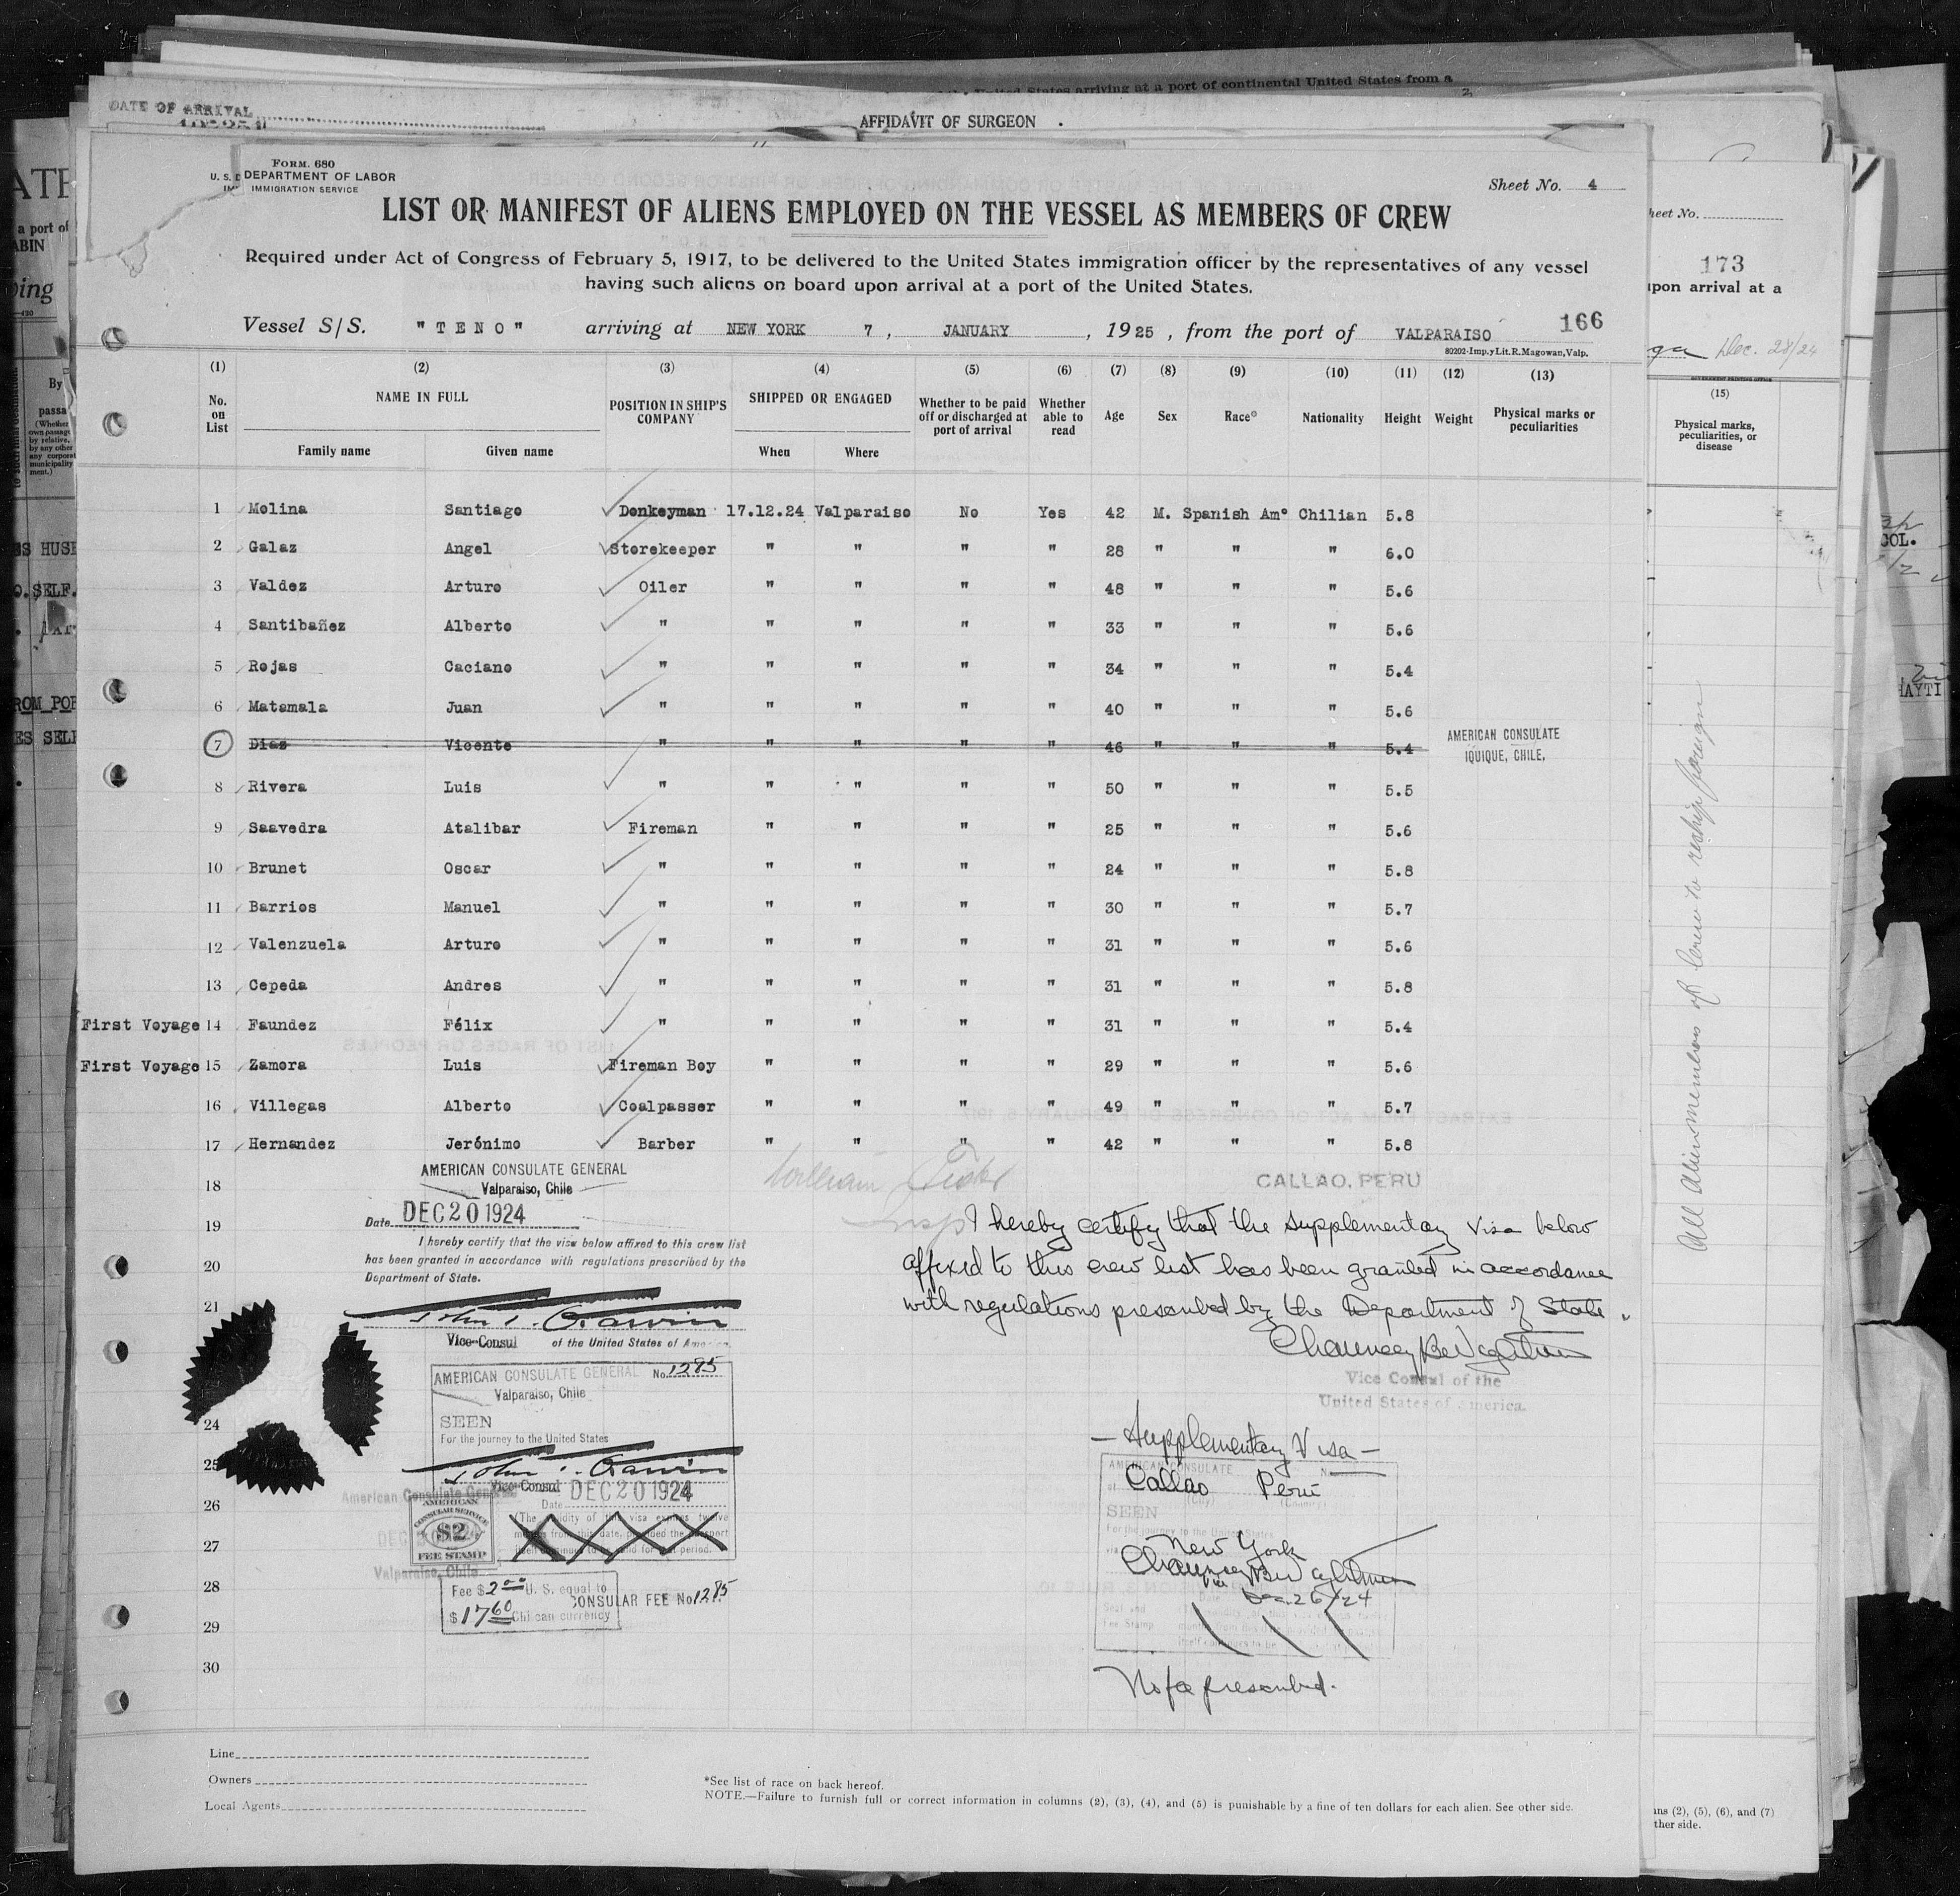 United States arriving at a port of continental United States from a
DATE OF ARRIVAL
AFFIDAVIT OF SURGEON
FORM. 680
U. S. DEPARTMENT OF LABOR
IMMIGRATION SERVICE
Sheet No. 4
LIST OR MANIFEST OF ALIENS EMPLOYED ON THE VESSEL AS MEMBERS OF CREW
Required under Act of Congress of February 5, 1917, to be delivered to the United States immigration officer by the representatives of any vessel
having such aliens on board upon arrival at a port of the United States.
Vessel S/S. "TENO" arriving at NEW YORK 7, JANUARY, 1925, from the port of VALPARAISO 166
80202-Imp.y Lit.R.Magowan, Valp.
(1) (2) (3) (4) (5) (6) (7) (8) (9) (10) (11) (12) (13)
No. on List
NAME IN FULL
Family name Given name
POSITION IN SHIP'S COMPANY
SHIPPED OR ENGAGED
When Where
Whether to be paid off or discharged at port of arrival
Whether able to read
Age Sex Race* Nationality Height Weight
Physical marks or peculiarities
1 Molina Santiago Donkeyman 17.12.24 Valparaiso No Yes 42 M. Spanish Amº Chilian 5.8
2 Galaz Angel Storekeeper " " " " 28 " " " 6.0
3 Valdez Arturo Oiler " " " " 48 " " " 5.6
4 Santibañez Alberto " " " " " 33 " " " 5.6
5 Rojas Caciano " " " " " 34 " " " 5.4
6 Matamala Juan " " " " " 40 " " " 5.6
7 Diaz Vicente " " " " " 46 " " " 5.4
AMERICAN CONSULATE
IQUIQUE, CHILE.
8 Rivera Luis " " " " " 50 " " " 5.5
9 Saavedra Atalibar Fireman " " " " 25 " " " 5.6
10 Brunet Oscar " " " " " 24 " " " 5.8
11 Barrios Manuel " " " " " 30 " " " 5.7
12 Valenzuela Arturo " " " " " 31 " " " 5.6
13 Cepeda Andres " " " " " 31 " " " 5.8
First Voyage 14 Faundez Félix " " " " " 31 " " " 5.4
First Voyage 15 Zamora Luis Fireman Boy " " " " 29 " " " 5.6
16 Villegas Alberto Coalpasser " " " " 49 " " " 5.7
17 Hernandez Jerónimo Barber " " " " 42 " " " 5.8
18
19
20
21
24
25
26
27
28
29
30
AMERICAN CONSULATE GENERAL
Valparaiso, Chile
Date DEC 20 1924
I hereby certify that the visa below affixed to this crew list
has been granted in accordance with regulations prescribed by the
Department of State.
Vice-Consul of the United States of America.
AMERICAN CONSULATE GENERAL No. 1285
Valparaiso, Chile
SEEN
For the journey to the United States
Vice-Consul DEC 20 1924
Date
(The validity of this visa expires twelve
months from this date, provided the passport
itself continues to be valid for that period.
AMERICAN
CONSULAR SERVICE
$2
FEE STAMP
American Consulate General
Valparaiso, Chile
Fee $2.00 U. S. equal to
$17.60 Chilean currency
CONSULAR FEE No. 1285
William
Insp
CALLAO, PERU
I hereby certify that the supplementary visa below
affixed to this crew list has been granted in accordance
with regulations prescribed by the Department of State.
Vice Consul of the
United States of America.
— Supplementary Visa —
AMERICAN CONSULATE
Callao Peru
(City) (Country)
SEEN
For the journey to the United States
New York
Dec. 26/24
Seal and
Fee Stamp
No fee prescribed.
Line
Owners
Local Agents
*See list of race on back hereof.
NOTE.—Failure to furnish full or correct information in columns (2), (3), (4), and (5) is punishable by a fine of ten dollars for each alien. See other side.
Sheet No.
173
upon arrival at a
Dec. 28/24
(15)
Physical marks,
peculiarities, or
disease
All Alien members of crew to reship foreign
ns (2), (5), (6), and (7)
ther side.
a port of
By
HAYTI